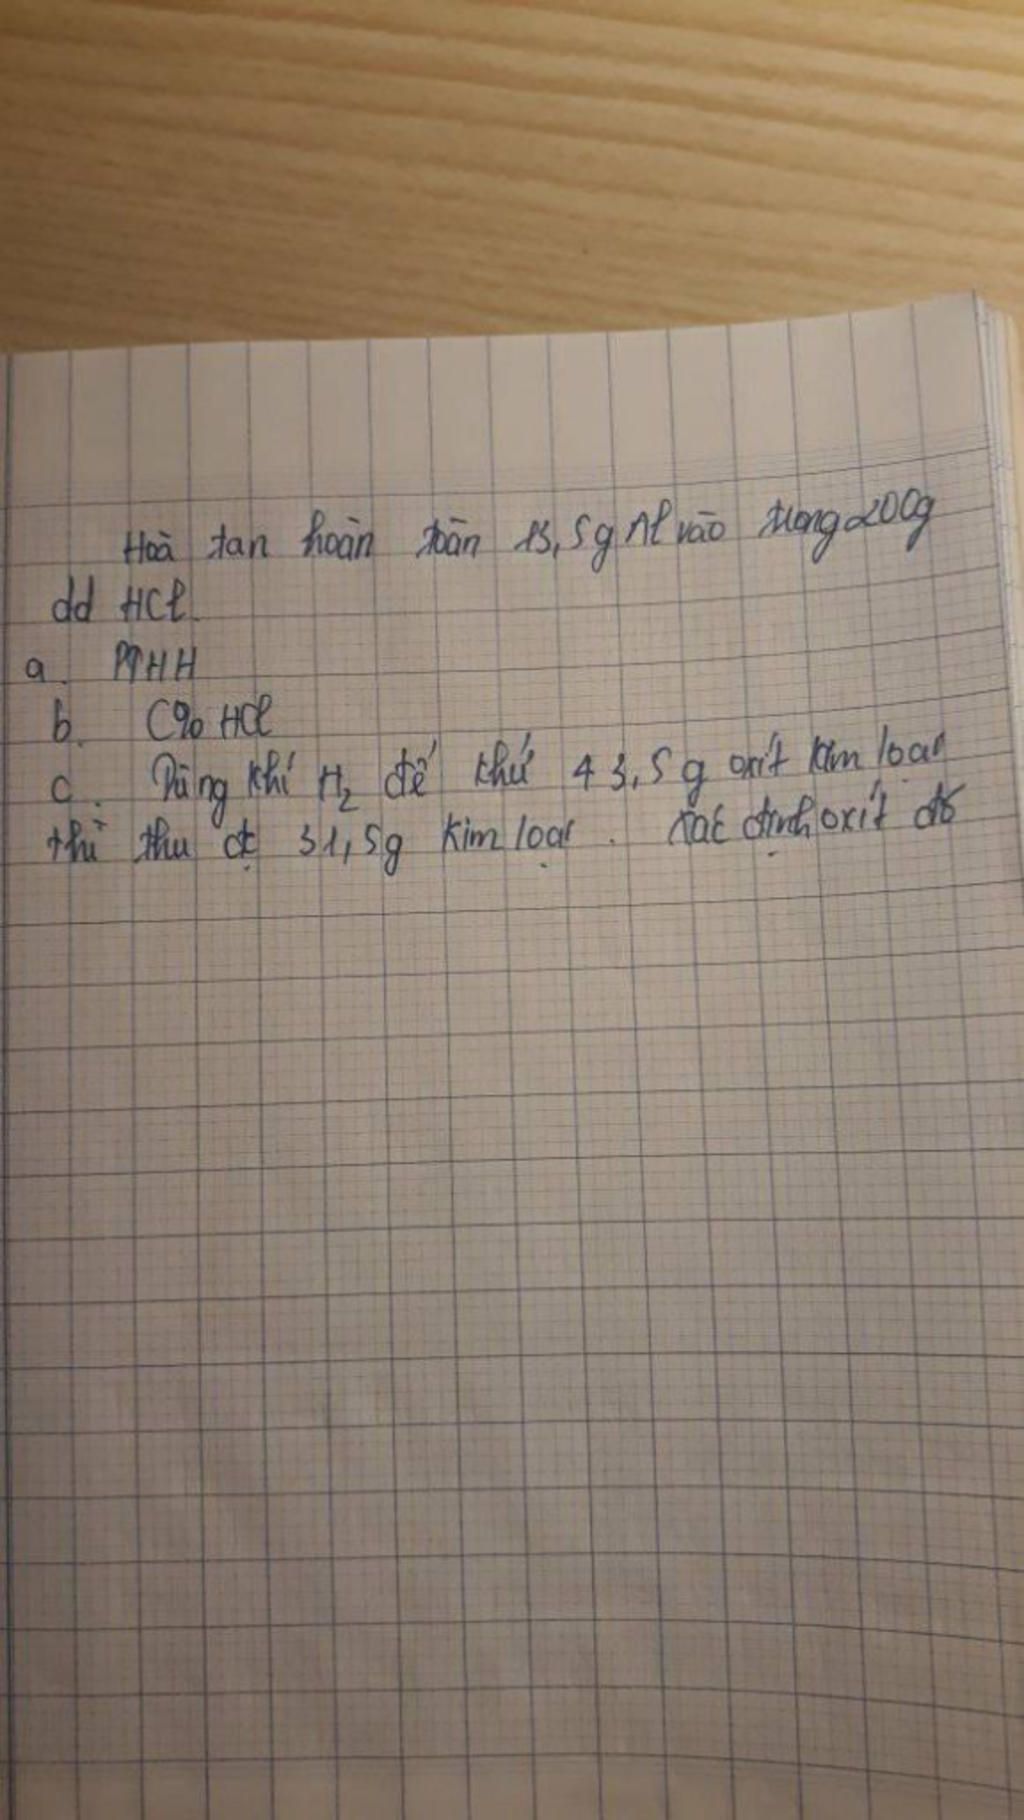 Hoà tan hoàn toàn 13,5g Al vào trong 200g
dd HCl
a. PTHH
b. C% HCl
c. Dùng khí H2 để khử 43,5g oxít kim loại
thì thu đc 31,5g kim loại. Xác định oxít đó